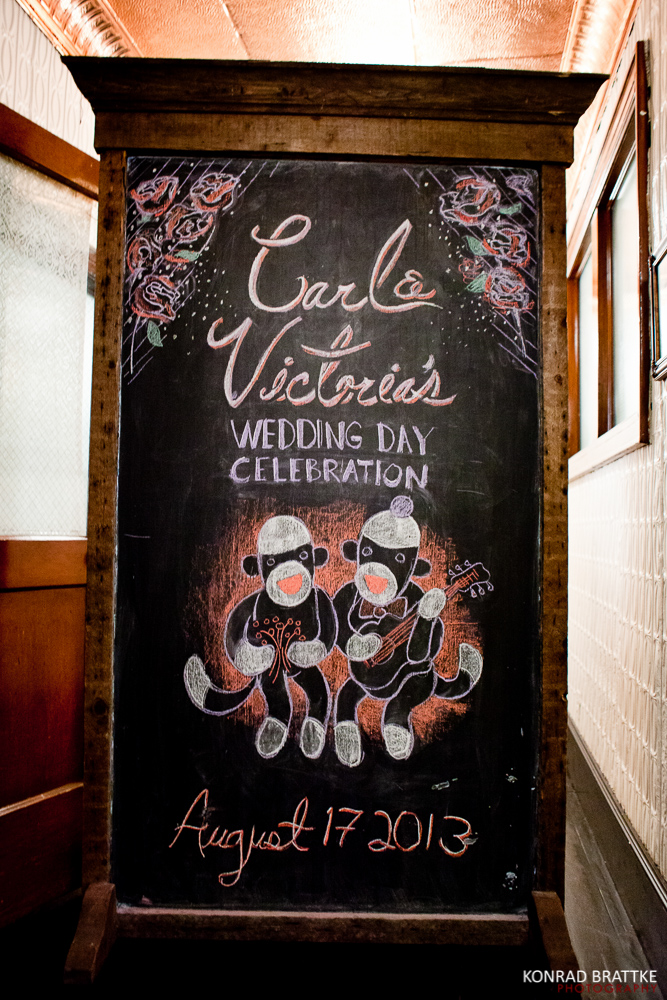 Carl &
Victoria's
WEDDING DAY
CELEBRATION
August 17 2013
KONRAD BRATTKE
PHOTOGRAPHY